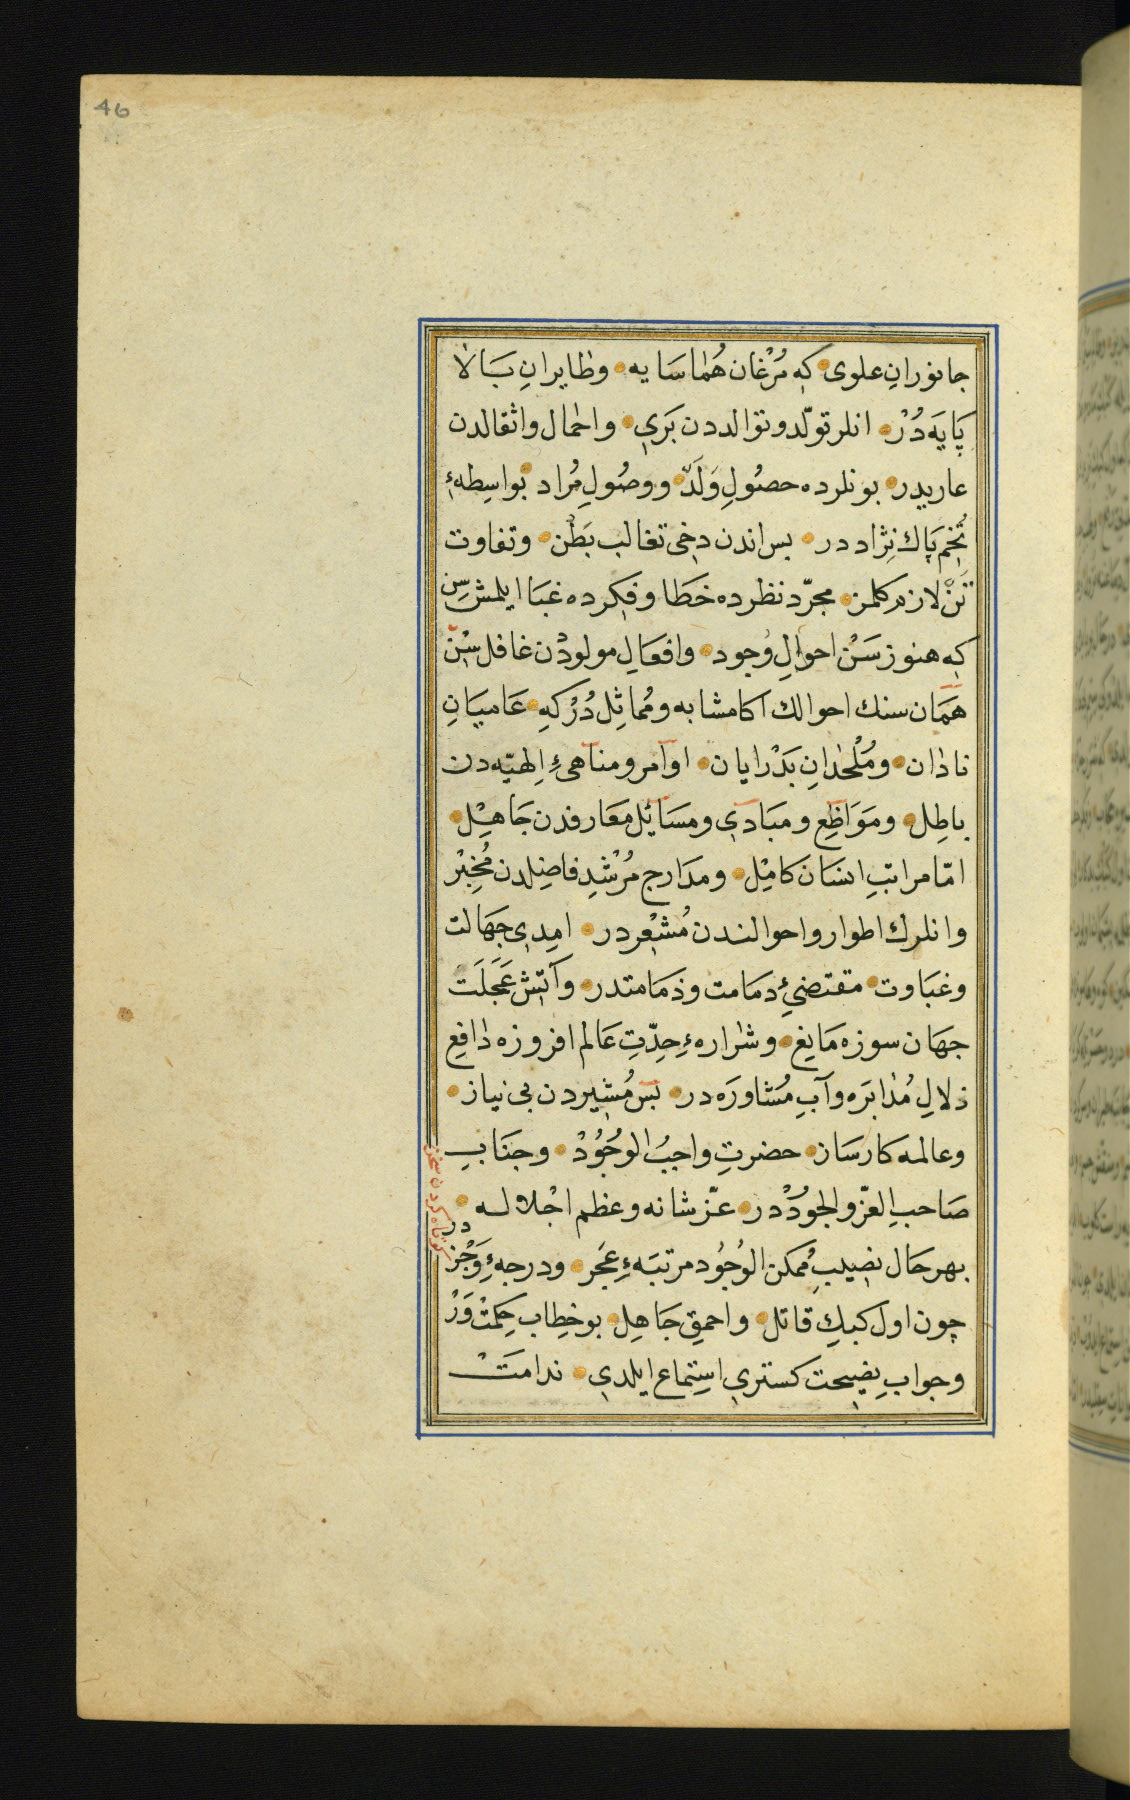 46
جانورانِ علوی که مُرْغان هُما سَایه وطایرانِ بَالا
پَایَه دُرْ انلر تولّد و توالددن بَرَی واحمال واثقالدن
عاریدر بونلرده حصُولِ وَلَدْ و وصُولِ مُراد بواسِطهٔ
تُخْمِ پَاك نِژاددر بس اندن دخی تغالب بَطْن وتفاوت
تَنْ لازم کلمز مجرّد نظرده خَطَا وفکرده غبَا ایلمش سِن
که هنوز سَنْ احوالِ وُجود وافعالِ مولودْن غافل سْن
همَان سنك احوالك اکا مشابه ومُماثِل دُرْ کهِ عَامیَانِ
نادَان ومُلْحِدَانِ بَدْرایان اوامر ومناهیءِ اِلٰهیّه دن
باطِل ومَوَاعِظِ ومبَادیِ ومسَائِل معَارفدن جَاهِل
امّا مراتبِ انسَان کامِل ومدَارج مُرْشدِ فاضِلدن مُخْبِرْ
وانلرك اطوار واحوالندن مُشْعِردر امدی جَهَالت
وغبَاوت مقتضیِٔ دمَامت وذمَامتدر وآتش عَجَلَت
جهَان سوزه مَانِع وشراره‌ءِ حِدّتِ عَالم افروزه دافِع
زلالِ مُدَابَره وآبِ مُشَاوَره در بَس مُشیردن بی نیاز
وعالمه کارسَان حضرتِ واجبُ الوُجُوْدْ وجنَابِ
صَاحبِ العزّ والجودْدر عزّ شانه وعظم اجْلاله
در
کوتاه کردن سخن
بهرحال نصیبِ مُمکن الوُجُود مرتبَهءِ عَجز ودرجهءِ وَجْز
چون اول کبكِ قاتل واحمقِ جَاهِل بو خِطاب حِکمتْ وَرْ
وجوابِ نصیحت کستری اِستماع ایلدی ندامتْ